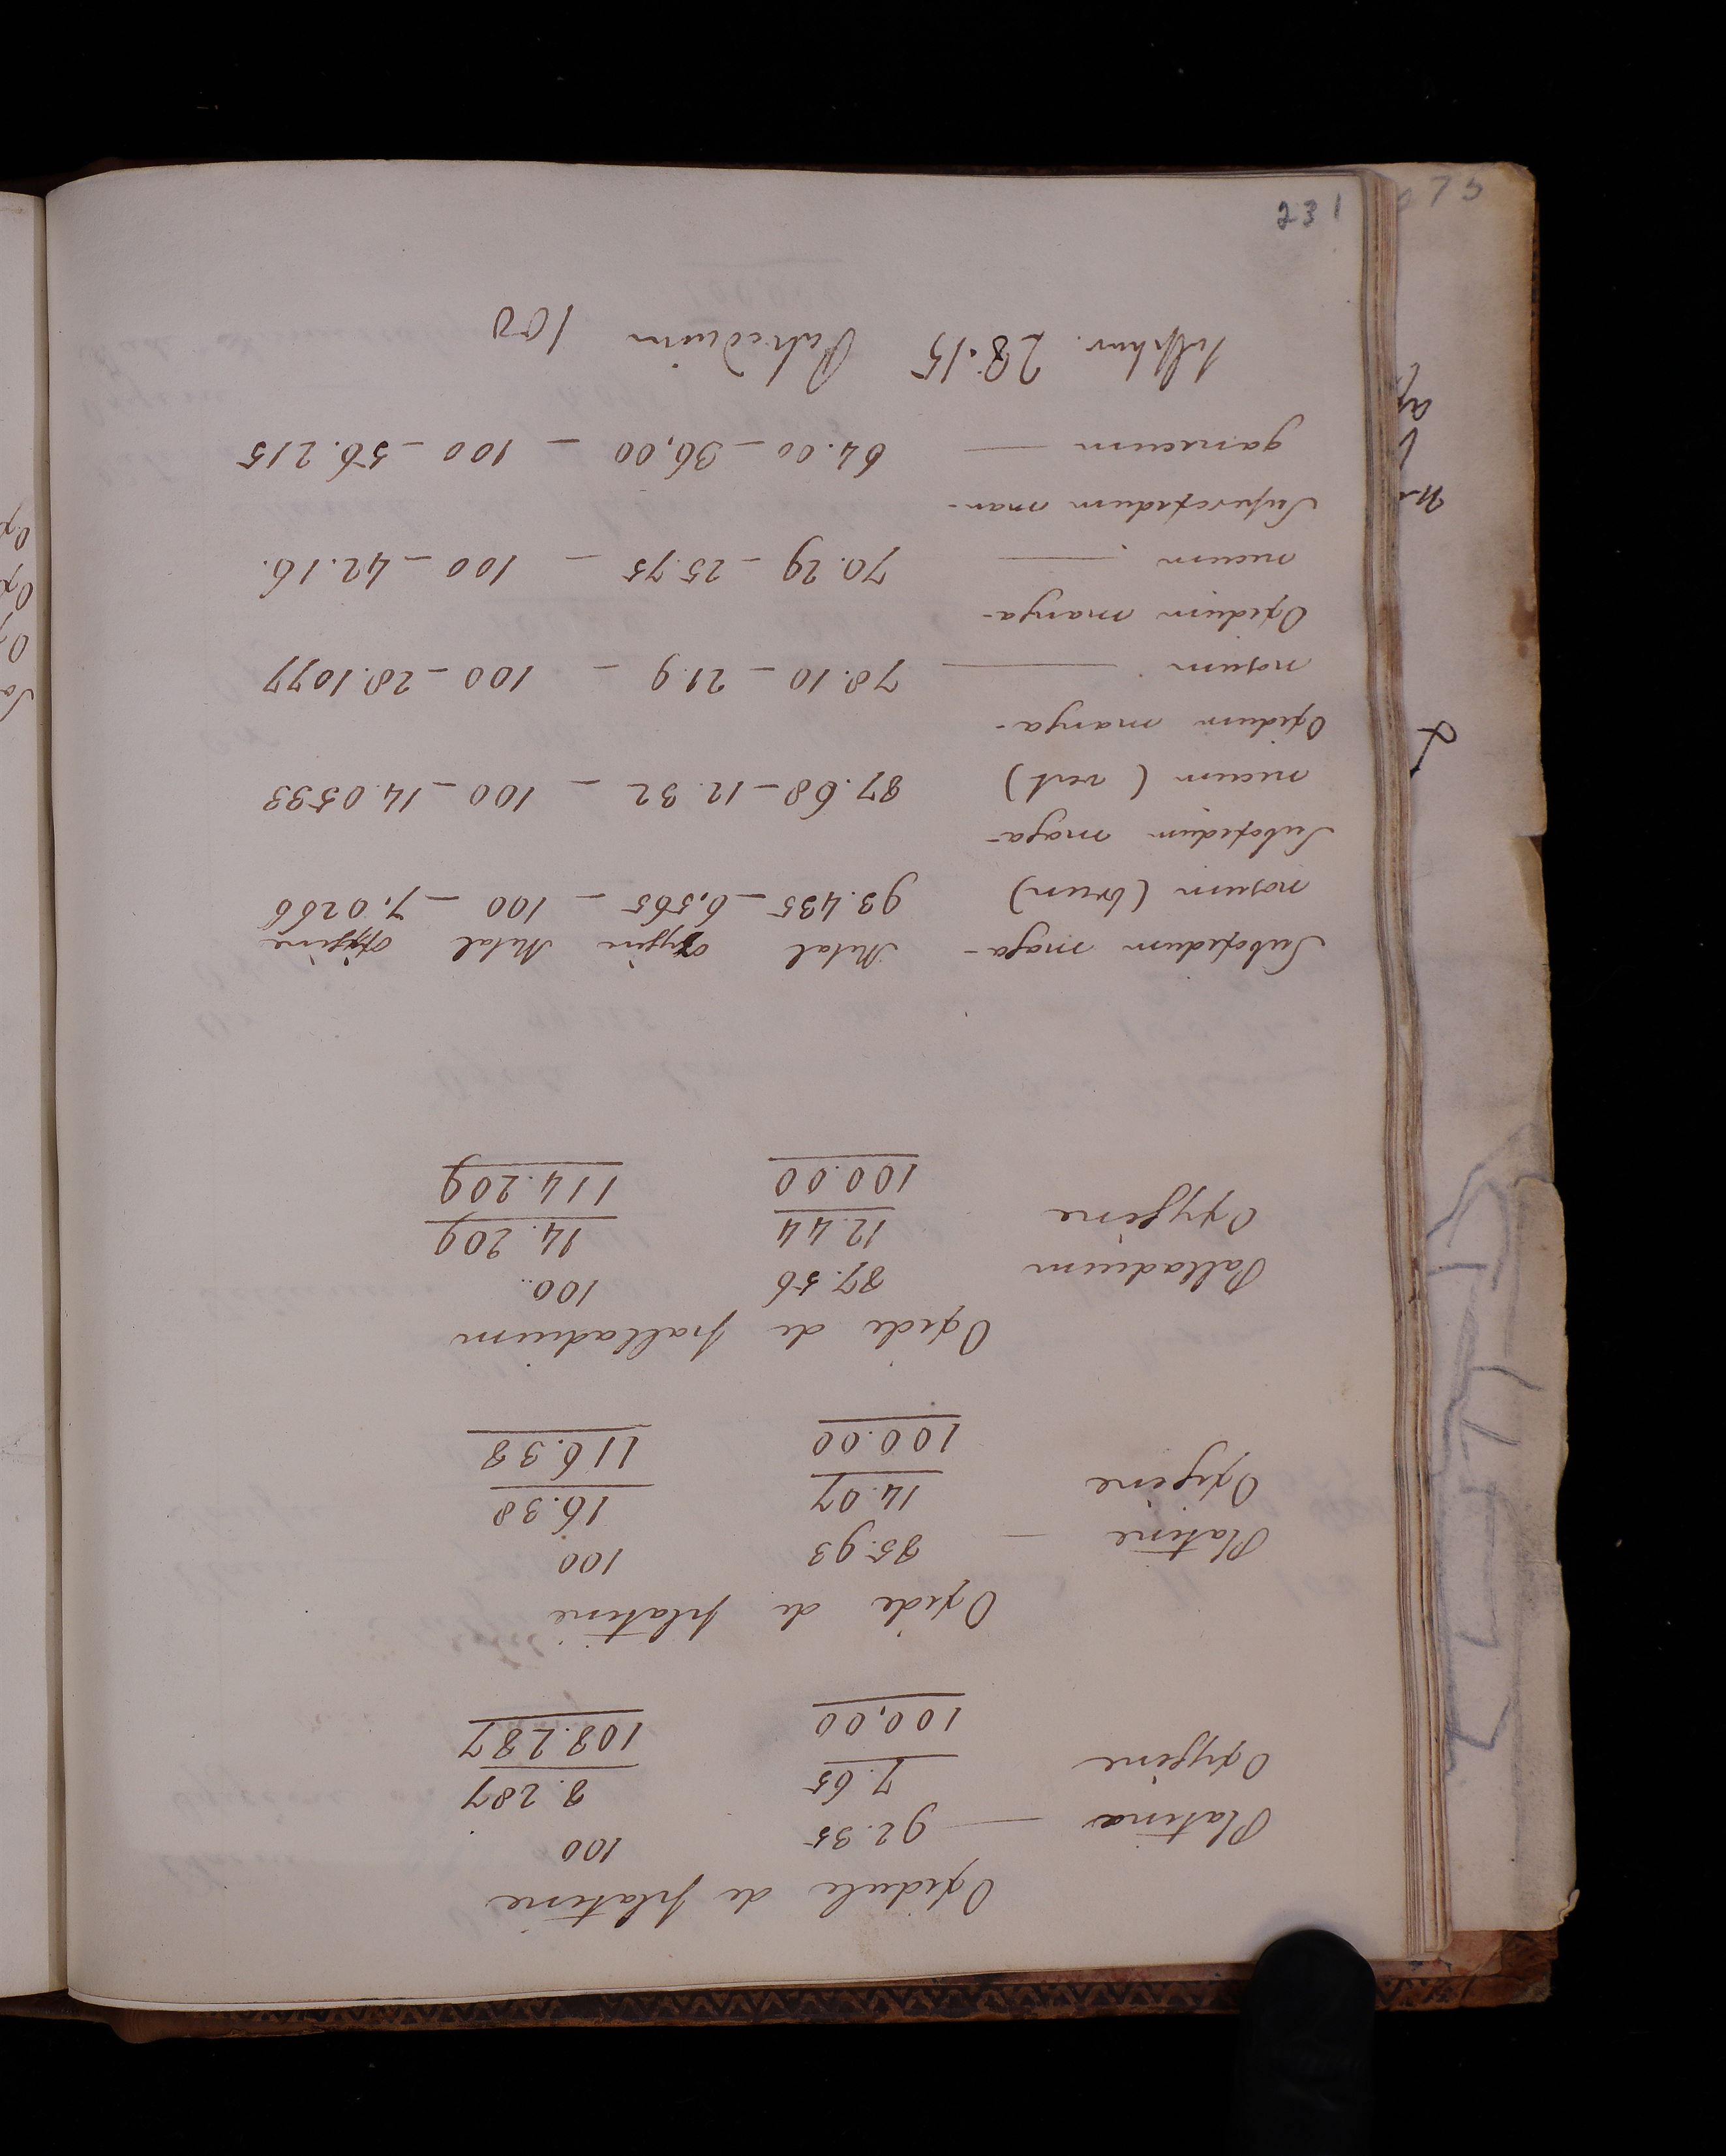 Oxidule de platine
Platina — 92.35 100
Oxygéne 7.65 8.287
100,00 108.287
Oxide de platine
Platine — 85.93 100
Oxygéne 14.07 16.38
100.00 116.38
Oxide de palladium
Palladium 87.56 100.
Oxygéne 12.44 14.209
100.00 114.209
Suboxidum maga- Metal oxygéne Metal oxygéne
nosum (brun) 93.435 - 6,565 - 100 - 7.0266
Suboxidum maga-
nicum (vert) 87.68 - 12.32 - 100 - 14.0533
Oxidum manga-
nosum — 78.10 - 21.9 - 100 - 28.1077
Oxidum manga-
nicum — 70.29 - 25.75 - 100 - 42.16.
Superoxidum man-
ganecum — 64.00 - 36,00 - 100 - 56.215
28.15 100
231